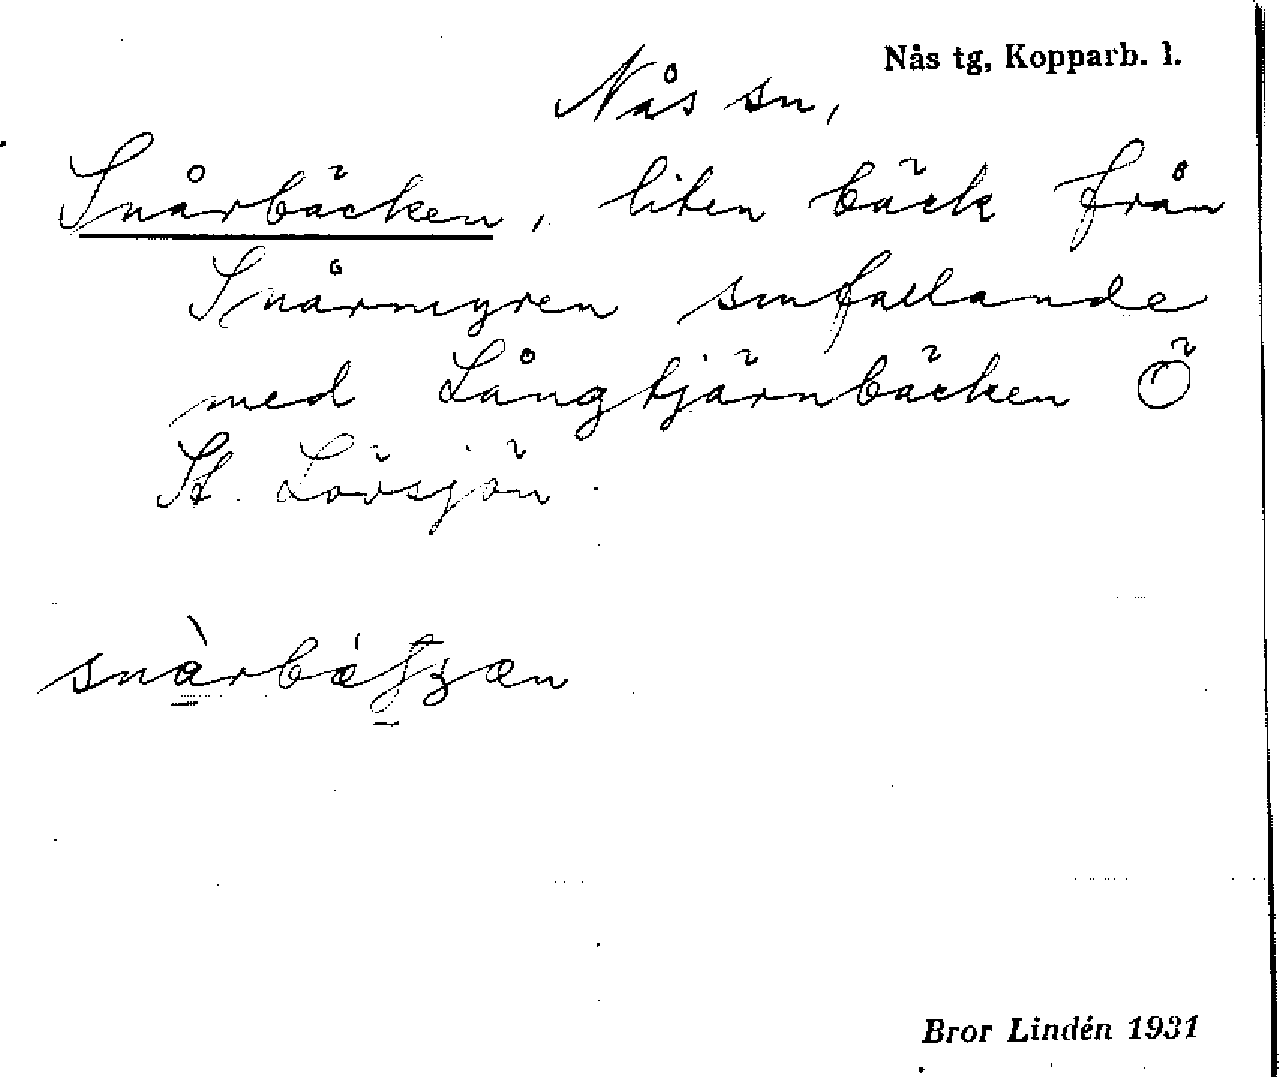 Nås tg, Kopparb. l.
Nås sn,
Snårbäcken, liten bäck från
Snårmyren smfallande
med Långtjärnbäcken Ö
St. Lövsjön.
Bror Lindén 1931